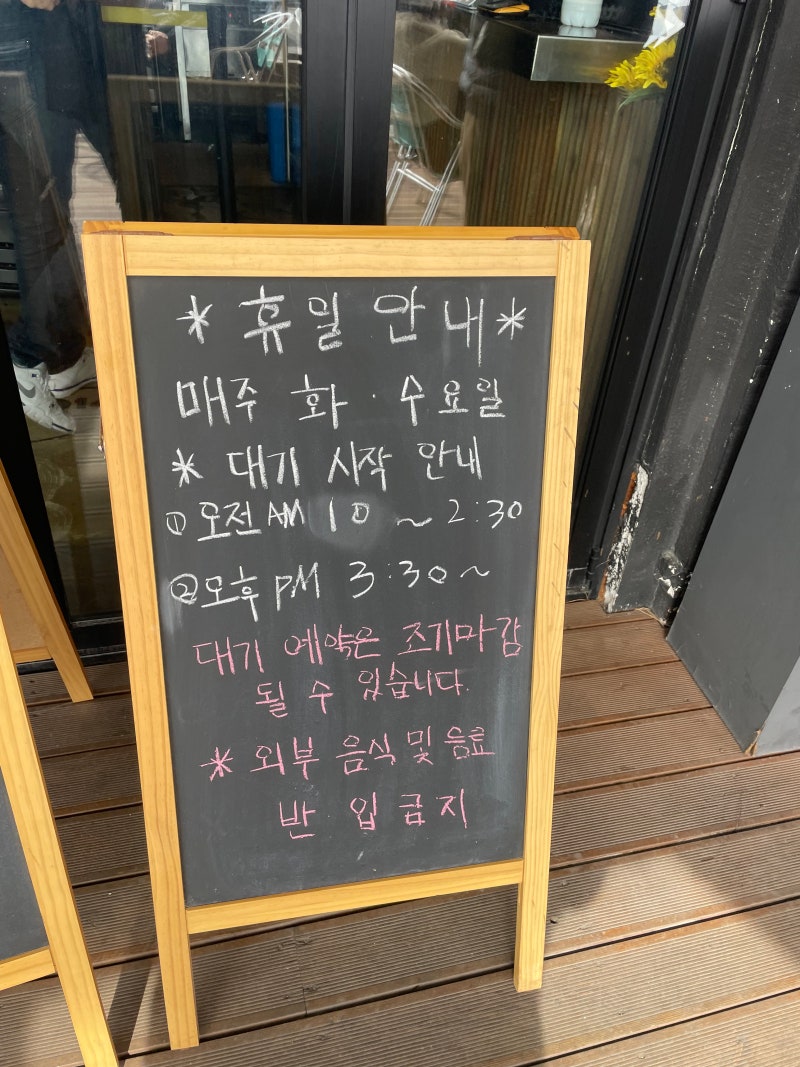 * 휴일 안내 *
매주 화 · 수요일
* 대기 시작 안내
① 오전 AM 10 ~ 2:30
② 오후 PM 3:30 ~
대기 예약은 조기마감
될 수 있습니다.
* 외부 음식 및 음료
반입금지